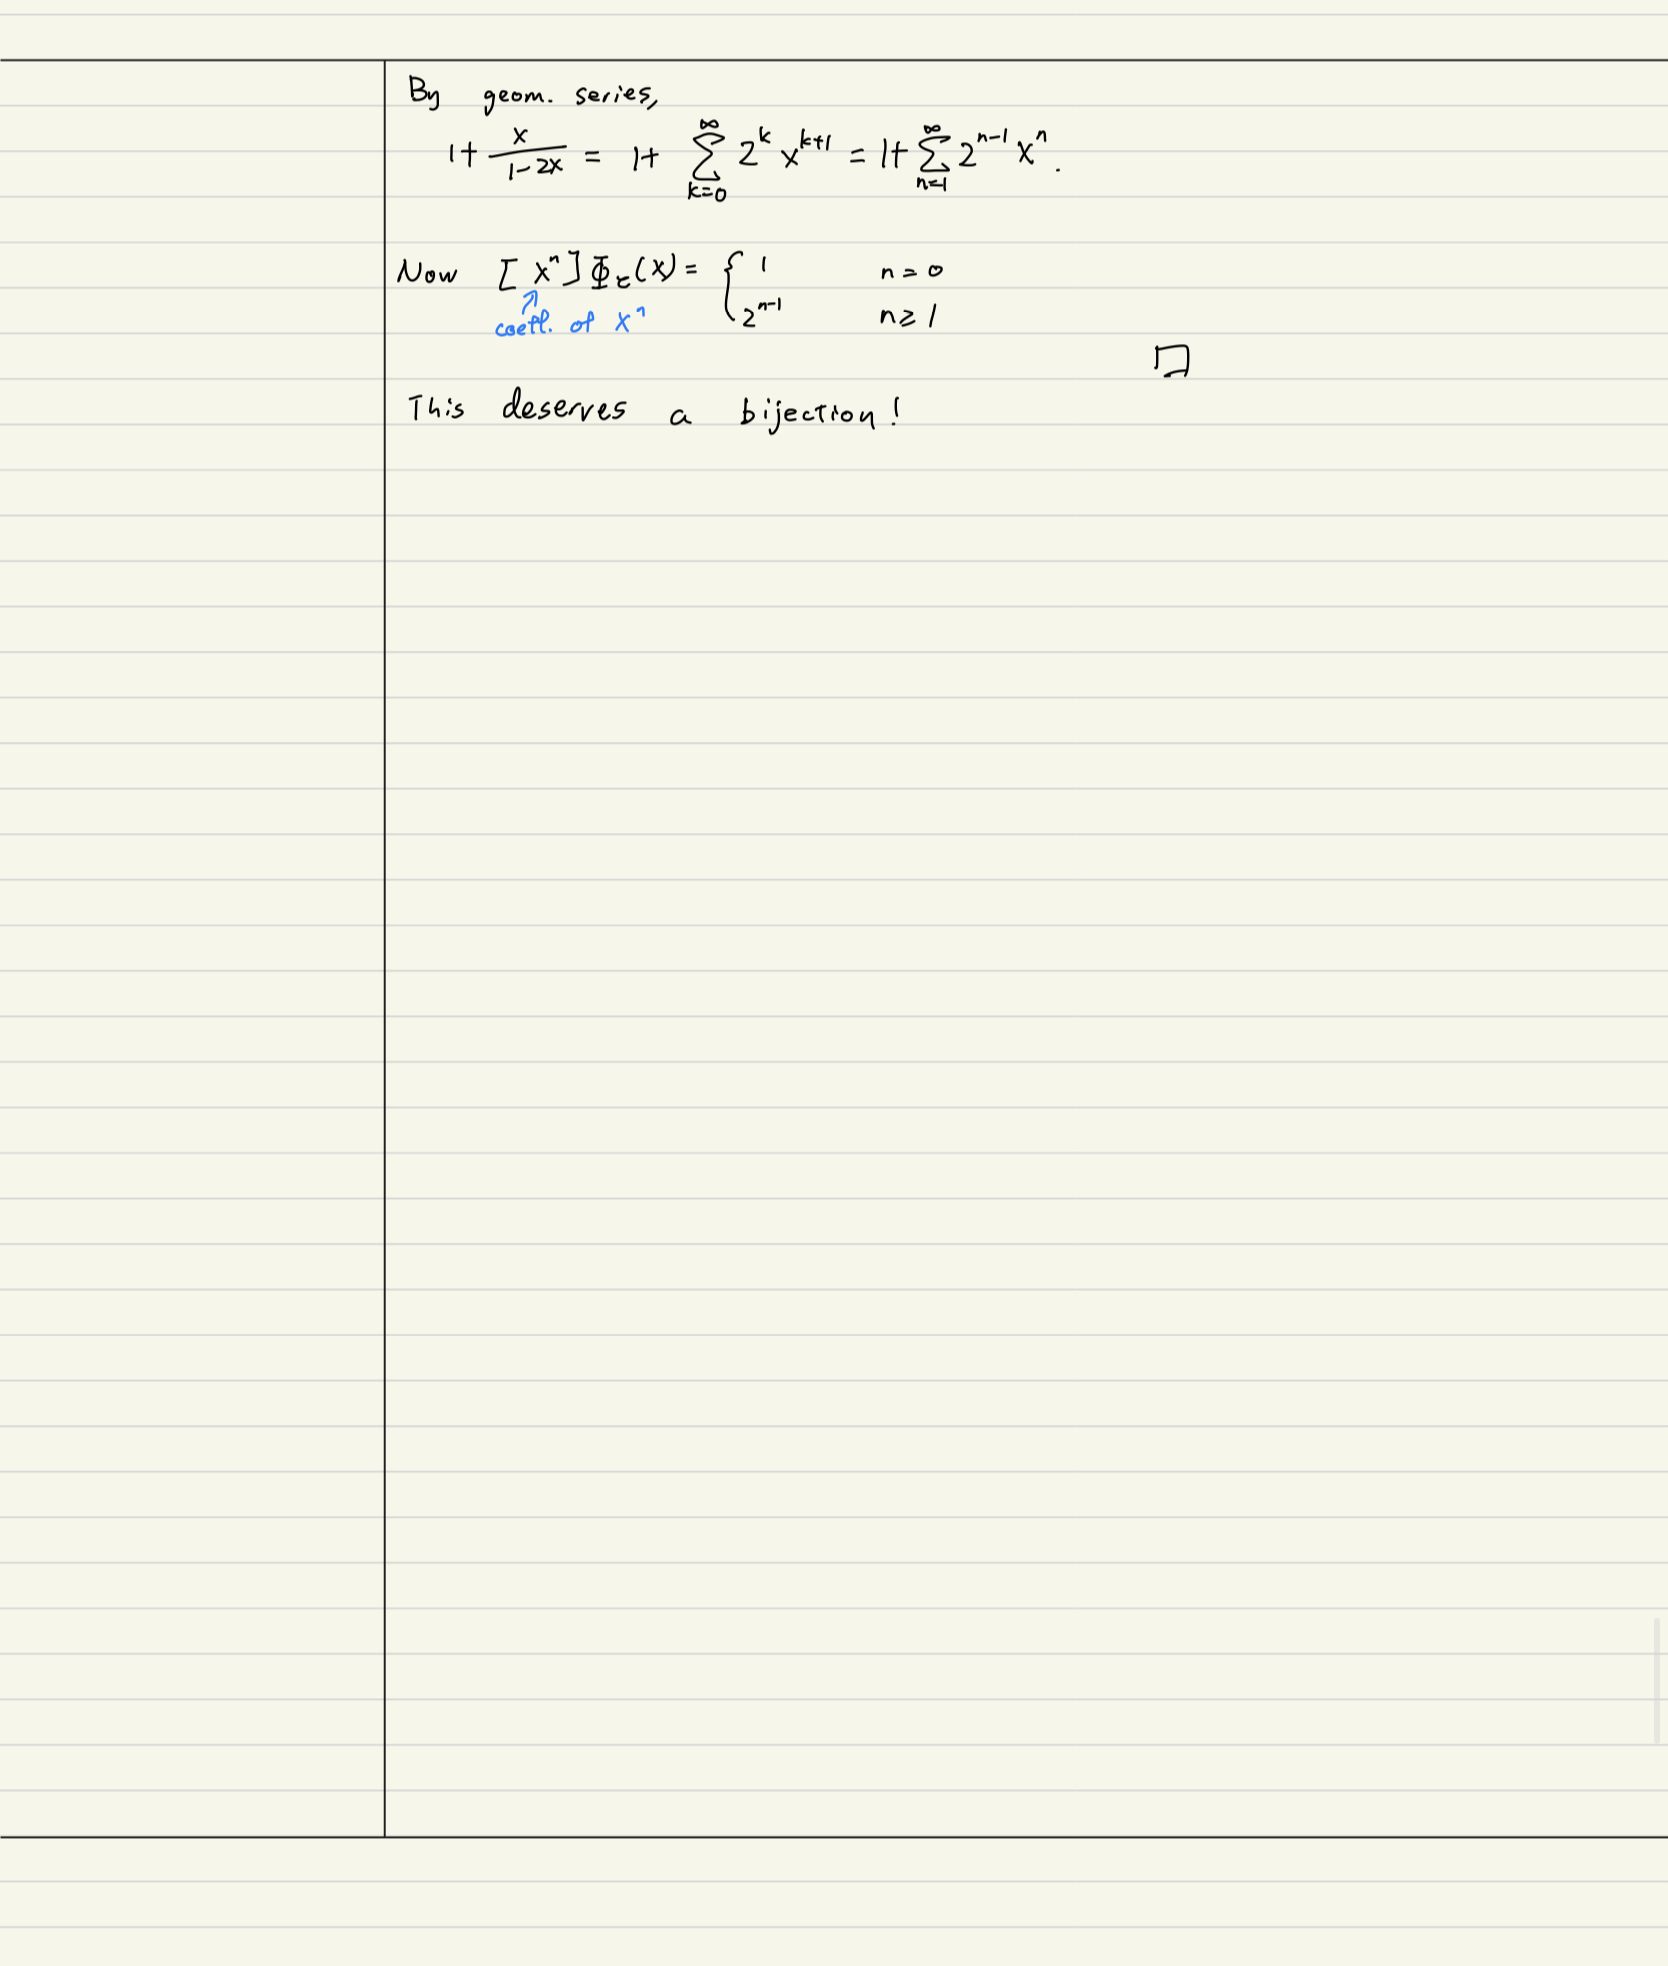 By geom. series,
1 + x/(1-2x) = 1 + ∑_{k=0}^{∞} 2^k x^{k+1} = 1 + ∑_{n=1}^{∞} 2^{n-1} x^n.
Now [x^n] Φ_τ(x) = { 1 n = 0
2^{n-1} n ≥ 1
coeff. of x^n
□
This deserves a bijection!